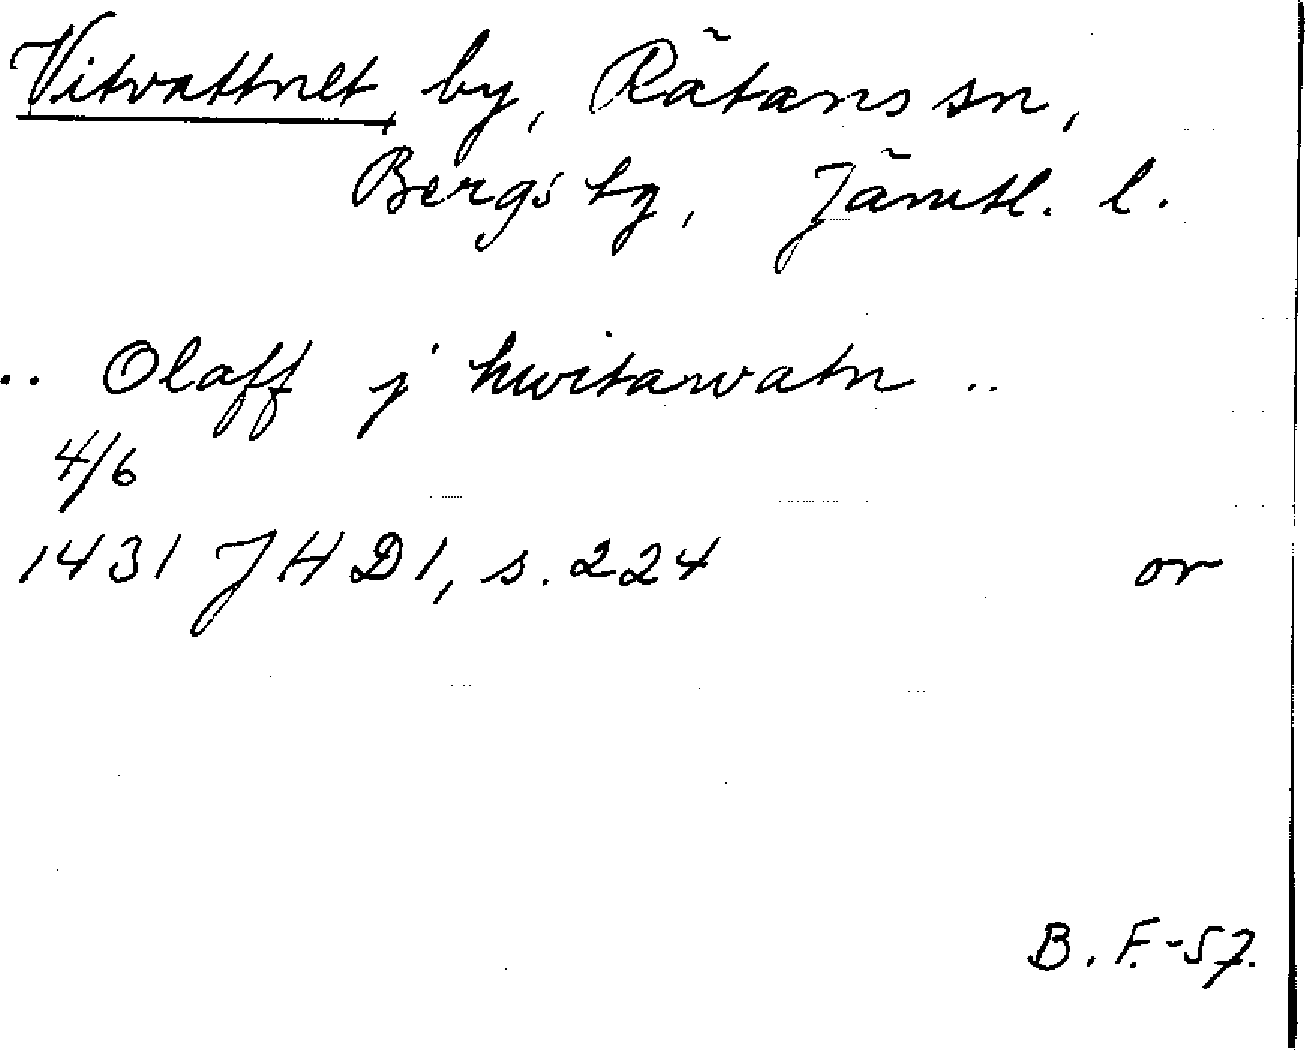 Vitvattnet, by, Rätans sn,
Bergs tg, Jämtl. l.
.. Olaff j hwitawatn ..
4/6
1431 JHD1, s. 224 or
B. F.-57.